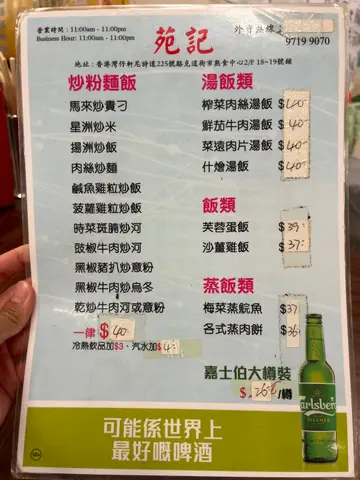 營業時間：11:00am - 11:00pm
Business Hour: 11:00am - 11:00pm
外賣熱線
9719 9070
苑記
地址：香港灣仔軒尼詩道225號駱克道街市熟食中心2/F 18~19號舖
炒粉麵飯
馬來炒貴刁
星洲炒米
揚洲炒飯
肉絲炒麵
鹹魚雞粒炒飯
菠蘿雞粒炒飯
時菜斑腩炒河
豉椒牛肉炒河
黑椒豬扒炒意粉
黑椒牛肉炒烏冬
乾炒牛河或意粉
一律 $40-
冷熱飲品加$3、汽水加$4-
湯飯類
榨菜肉絲湯飯 $40-
鮮茄牛肉湯飯 $40-
菜遠肉片湯飯 $40-
什燴湯飯 $40-
飯類
芙蓉蛋飯 $39-
沙薑雞飯 $37-
蒸飯類
梅菜蒸鯇魚 $37
各式蒸肉餅 $36
嘉士伯大樽裝
$ /樽
Carlsberg
PILSNER
可能係世界上
最好嘅啤酒
18+